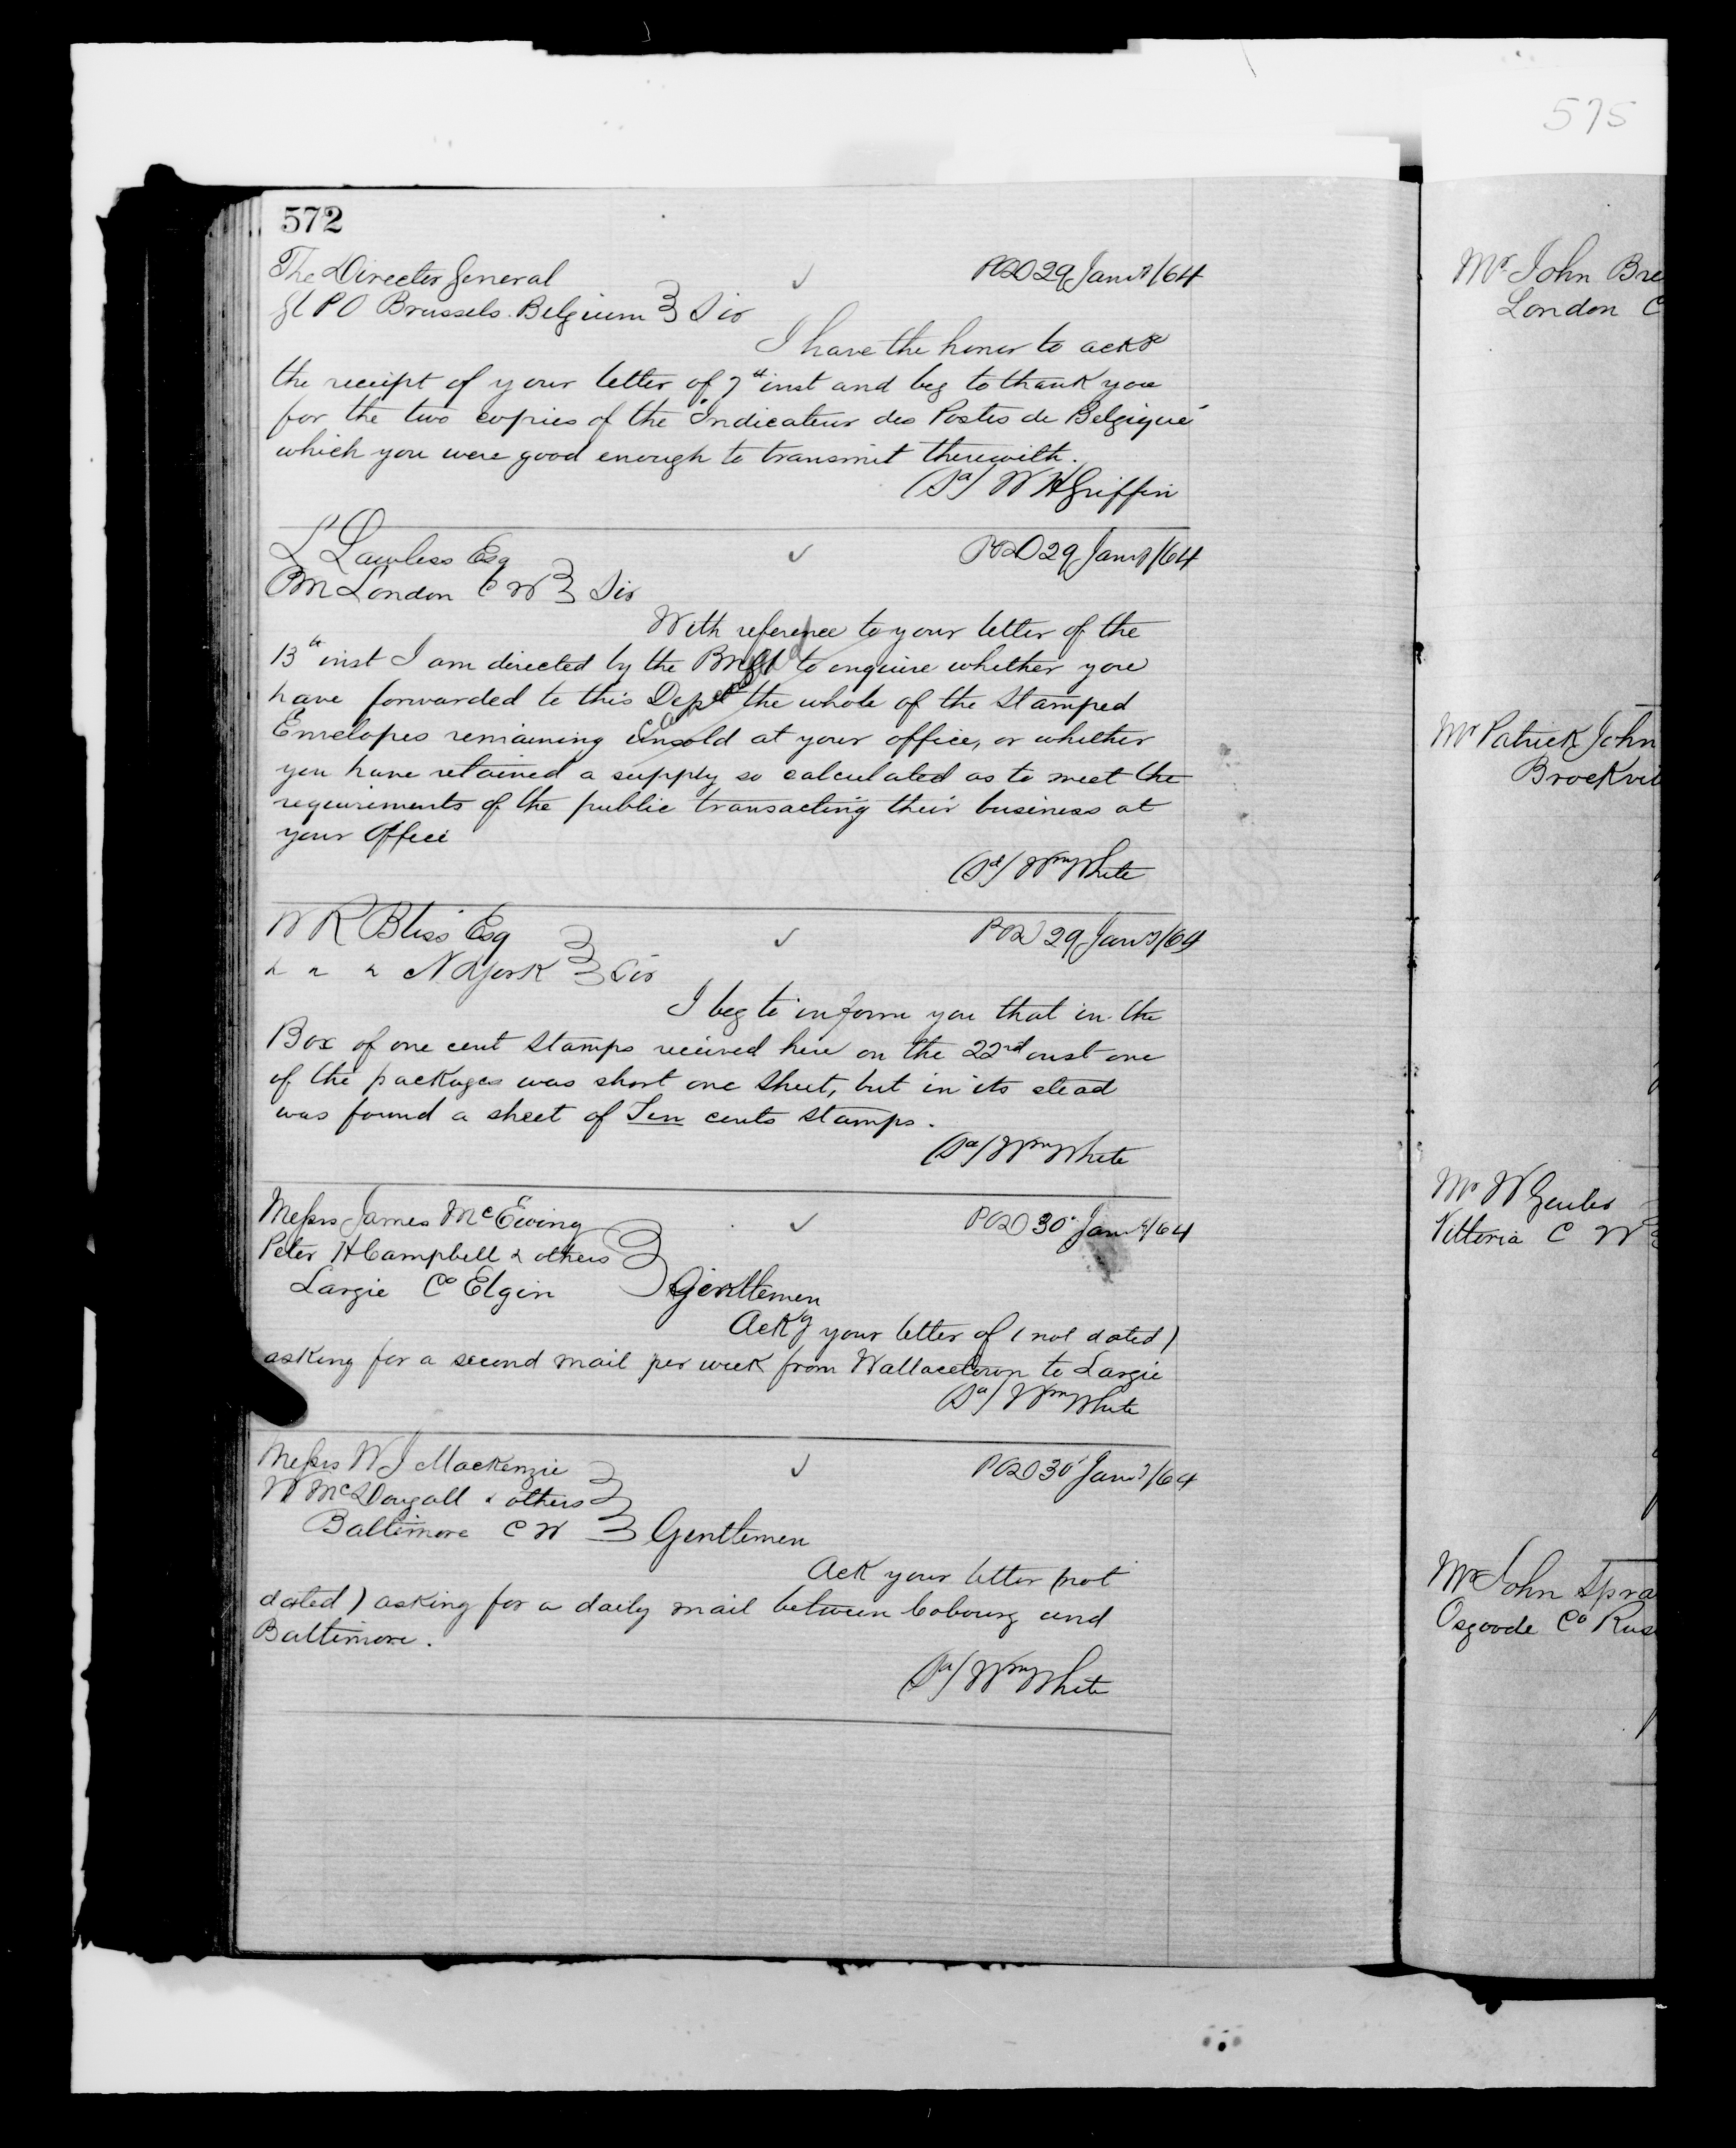 575
572
The Director General ✓ POD 29 Jany/64
Gl PO Brussels. Belgium } Sir
I have the honor to ackge
the receipt of your letter of 7th inst and beg to thank you
for the two copies of the "Indicateur des Postes de Belgique"
which you were good enough to transmit therewith.
(Sd) W H Griffin
L Lawless Esq ✓ POD 29 Jany/64
PM London C W } Sir
With reference to your letter of the
13th inst I am directed by the PMGl to enquire whether you
have forwarded to this Dept the whole of the Stamped
Cancelled
Envelopes remaining unsold at your office, or whether
you have retained a supply so calculated as to meet the
requirements of the public transacting their business at
your Office
(Sd) Wm White
W R Bliss Esq ✓ POD 29 Jany/64
N. York } Sir
I beg to inform you that in the
Box of one cent Stamps received here on the 22nd inst one
of the packages was short one Sheet, but in its stead
was found a sheet of Ten cents Stamps.
(Sd) Wm White
Messrs James McEwing ✓ POD 30 Jany/64
Peter H Campbell & others
Largie Co Elgin } Gentlemen
Ackg your letter of (not dated)
asking for a second mail per week from Wallacetown to Largie
(Sd) Wm White
Messrs W J Mackenzie ✓ POD 30 Jany/64
W McDougall & others
Baltimore C W } Gentlemen
Ack your letter (not
dated) asking for a daily mail between Cobourg and
Baltimore.
(Sd) Wm White
Mr John Bre
London C
Mr Patrick John
Brockvil
Mr W
Vittoria C W
Mr John Spra
Osgoode Co Rus